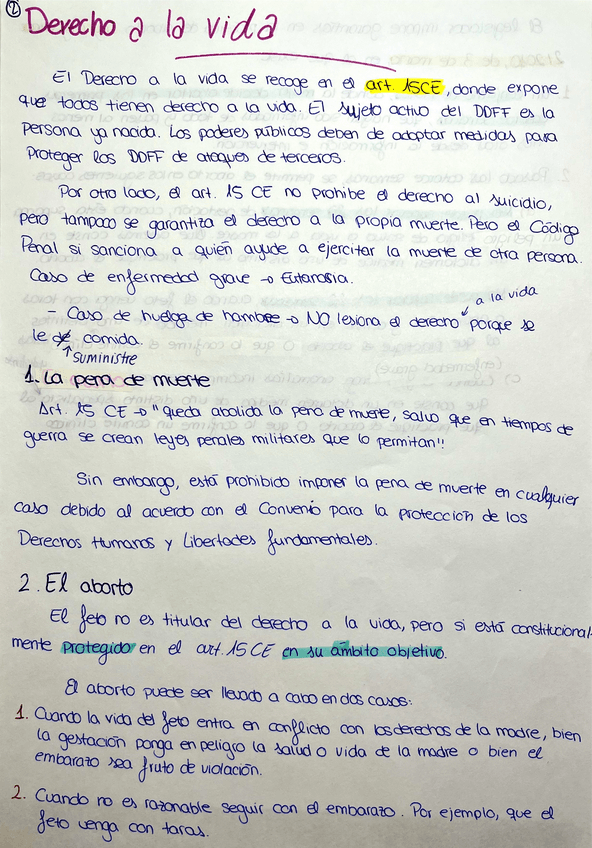 1
Derecho a la vida
El Derecho a la vida se recoge en el art. 15CE, donde expone
que todos tienen derecho a la vida. El sujeto activo del DDFF es la
persona ya nacida. Los poderes públicos deben de adoptar medidas para
proteger los DDFF de ataques de terceros.
Por otro lado, el art. 15 CE no prohibe el derecho al suicidio,
pero tampoco se garantiza el derecho a la propia muerte. Pero el Código
Penal si sanciona a quién ayude a ejercitar la muerte de otra persona.
Caso de enfermedad grave → Eutanasia.
a la vida
- Caso de huelga de hambre → NO lesiona el derecho porque se
le comida.
↑ suministre
1. La pena de muerte
Art. 15 CE → "queda abolida la pena de muerte, salvo que en tiempos de
guerra se crean leyes penales militares que lo permitan".
Sin embargo, está prohibido imponer la pena de muerte en cualquier
caso debido al acuerdo con el Convenio para la protección de los
Derechos Humanos y Libertades fundamentales.
2. El aborto
El feto no es titular del derecho a la vida, pero si está constitucional-
mente protegido en el art. 15 CE en su ámbito objetivo.
El aborto puede ser llevado a cabo en dos casos:
1. Cuando la vida del feto entra en conflicto con los derechos de la madre, bien
la gestación ponga en peligro la salud o vida de la madre o bien el
embarazo sea fruto de violación.
2. Cuando no es razonable seguir con el embarazo. Por ejemplo, que el
feto venga con taras.